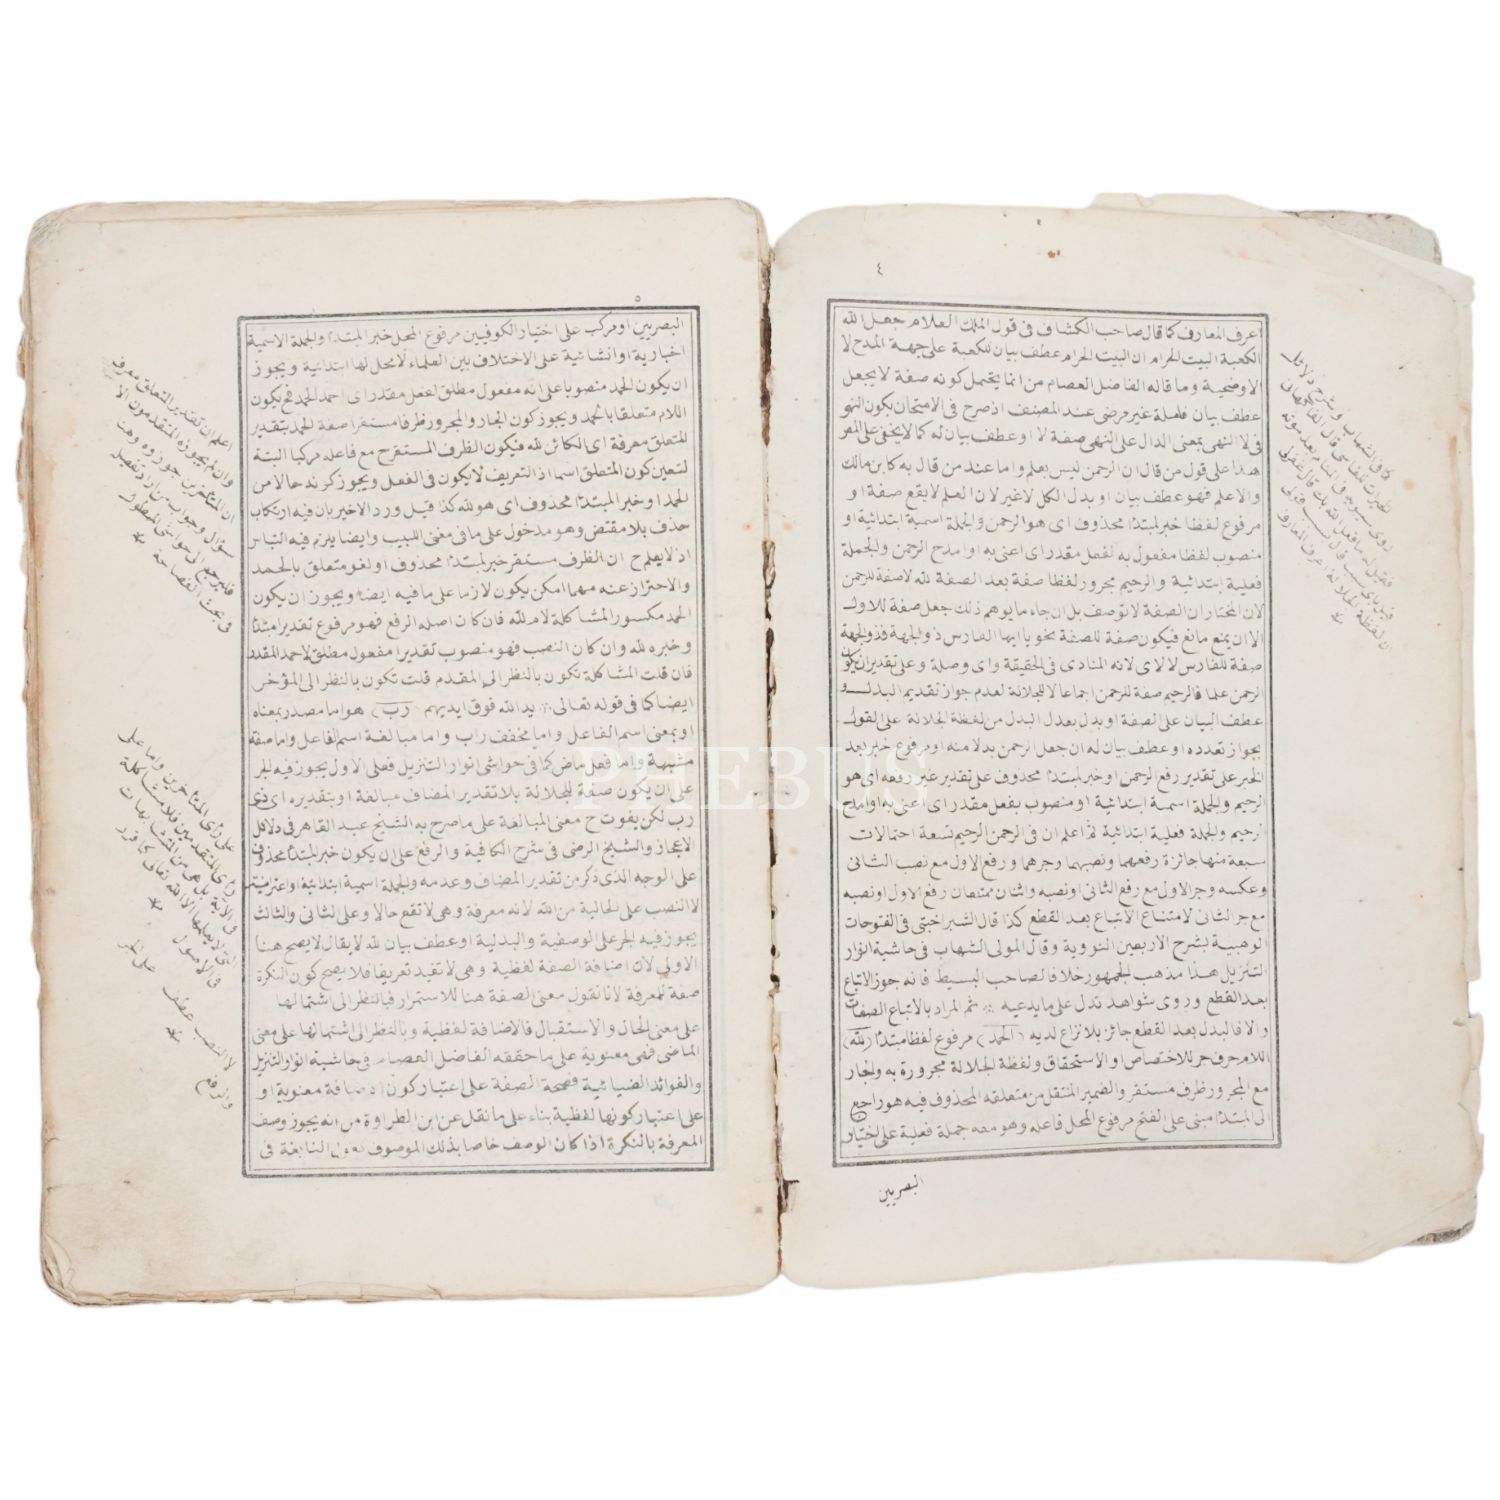 ٤
اعرف المعارف كما قال صاحب الكشاف فى قول الملك العلام جعل الله
الكعبة البيت الحرام ان البيت الحرام عطف بيان للكعبة على جهة المدح لا
الاوضحية وما قاله الفاضل العصام من انما يحتمل كونه صفة لا يجعل
عطف بيان فلعلة غير مرضى عند المصنف اذ صرح فى الامتحان بكون النهو
فى لا النهى بمعنى الدال على النهى صفة لا او عطف بيان له كما لا يخفى على المقر
هذا على قول من قال ان الرحمن ليس بعلم واما عند من قال به كابن مالك
والاعلم فهو عطف بيان او بدل الكل لا غير لان العلم لا يقع صفة او
مرفوع لفظا خبر لمبتدأ محذوف اى هو الرحمن والجملة اسمية ابتدائية او
منصوب لفظا مفعول به لفعل مقدر اى اعنى به او امدح الرحمن والجملة
فعلية ابتدائية والرحيم مجرور لفظا صفة بعد الصفة لله لا صفة للرحمن
لان المختار ان الصفة لا توصف بل ان جاء ما يوهم ذلك جعل صفة للاول
الا ان يمنع مانع فيكون صفة للصفة نحو يا ايها الفارس ذو الجهة فذو الجهة
صفة للفارس لا لاى لانه المنادى فى الحقيقة واى وصلة وعلى تقدير ان يكون
الرحمن علما فالرحيم صفة للرحمن اجماعا لا للجلالة لعدم جواز تقديم البدل و
عطف البيان على الصفة او بدل بعد البدل من لفظة الجلالة على القول
بجواز تعدده او عطف بيان له ان جعل الرحمن بدلا منه او مرفوع خبر بعد
الخبر على تقدير رفع الرحمن او خبر لمبتدأ محذوف على تقدير غير رفعه اى هو
الرحيم والجملة اسمة ابتدائية او منصوب بفعل مقدر اى اعنى به او امدح
الرحيم والجملة فعلية ابتدائية ثم اعلم ان فى الرحمن الرحيم تسعة احتمالات
سبعة منها جائزة رفعهما ونصبهما وجرهما ورفع الاول مع نصب الثانى
وعكسه وجر الاول مع رفع الثانى او نصبه واثنان ممتنعان رفع الاول او نصبه
مع جر الثانى لامتناع الاتباع بعد القطع كذا قال الشبراخيتى فى الفتوحات
الوهبية بشرح الاربعين النووية وقال المولى الشهاب فى حاشية انوار
التنزيل هذا مذهب الجمهور خلافا لصاحب البسيط فانه جوز الاتباع
بعد القطع وروى شواهد تدل على ما يدعيه ثم المراد بالاتباع الصفات
والا فالبدل بعد القطع جائز بلا نزاع لديه (الحمد) مرفوع لفظا مبتدأ (لله)
اللام حرف جر للاختصاص او الاستحقاق ولفظة الجلالة مجرورة به والجار
مع المجرور ظرف مستقر والضمير المنتقل من متعلقه المحذوف فيه هو راجع
الى المبتدأ مبنى على الفتح مرفوع المحل فاعله وهو معه جملة فعلية على اختيار
البصريين
٥
البصريين او مركب على اختيار الكوفيين مرفوع المحل خبر المبتدأ والجملة الاسمية
اخبارية او انشائية على الاختلاف بين العلماء لا محل لها ابتدائية ويجوز
ان يكون الحمد منصوبا على انه مفعول مطلق لفعل مقدر اى احمد الحمد فح يكون
اللام متعلقا بالحمد ويجوز كون الجار والمجرور ظرفا مستقرا صفة للحمد بتقدير
المتعلق معرفة اى الكائن لله فيكون الظرف المستقر ح مع فاعله مركبا البتة
لتعين كون المتعلق اسما اذ التعريف لا يكون فى الفعل ويجوز كونه حالا من
الحمد او خبر المبتدأ محذوف اى هو لله كذا قيل ورد الاخير بان فيه ارتكاب
حذف بلا مقتض وهو مدخول على ما فى مغنى اللبيب وايضا يلزم فيه التباس
اذ لا يعلم ح ان الظرف مستقر خبر لمبتدأ محذوف او لغو متعلق بالحمد
والاحتراز عنه مهما امكن يكون لازما على ما فيه ايضا ويجوز ان يكون
الحمد مكسور المشاكلة لام لله فان كان اصله الرفع فهو مرفوع تقديرا مبتدأ
وخبره لله وان كان النصب فهو منصوب تقديرا مفعول مطلق لاحمد المقدر
فان قلت المشاكلة تكون بالنظر الى المقدم قلت تكون بالنظر الى المؤخر
ايضا كما فى قوله تعالى يد الله فوق ايديهم (رب) هو اما مصدر بمعناه
او بمعنى اسم الفاعل واما مخفف راب واما مبالغة اسم الفاعل واما صفة
مشبهة واما فعل ماض كما فى حواشى انوار التنزيل فعلى الاول يجوز فيه الجر
على ان يكون صفة للجلالة بلا تقدير المضاف مبالغة او بتقديره اى ذى
رب لكن يفوت ح معنى المبالغة على ما صرح به الشيخ عبد القاهر فى دلائل
الاعجاز والشيخ الرضى فى شرح الكافية والرفع على ان يكون خبر المبتدأ محذوف
على الوجه الذى ذكر من تقدير المضاف وعدمه والجملة اسمية ابتدائية او اعتراضية
لا النصب على الحالية من الله لانه معرفة وهى لا تقع حالا وعلى الثانى والثالث
يجوز فيه الجر على الوصفية والبدلية او عطف بيان لله لا يقال لا يصح هنا
الاولى لان اضافة الصفة لفظية وهى لا تفيد تعريفا فلا يصح كون النكرة
صفة للمعرفة لانا نقول معنى الصفة هنا للاستمرار فبالنظر الى اشتمالها
على معنى الحال والاستقبال فالاضافة لفظية وبالنظر الى اشتمالها على معنى
الماضى فهى معنوية على ما حققه الفاضل العصام فى حاشية انوار التنزيل
والفوائد الضيائية فصحة الصفة على اعتبار كون اضافة معنوية او
على اعتبار كونها لفظية بناء على ما نقل عن ابن الطراوة من انه يجوز وصف
المعرفة بالنكرة اذا كان الوصف خاصا بذلك الموصوف كقول النابغة فى
اعلم ان تقدير المتعلق معرفة
وان لم يجوزه المتقدمون الا
ان المتأخرين جوزوه وهنا
سؤال وجواب من اراد تفصيل
فليرجع الى حواشى المطول
فى بحث الفصاحة
على رأى المتأخرين واما على
لا النصب عطف على الجر
والرفع
PHEBUS